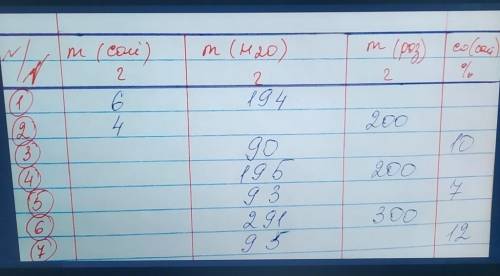 N/N m (солі) г m (H2O) г m (роз) г ω(солі) %
1 6 194
2 4 200
3 90 10
4 195 200
5 93 7
6 291 300
7 95 12